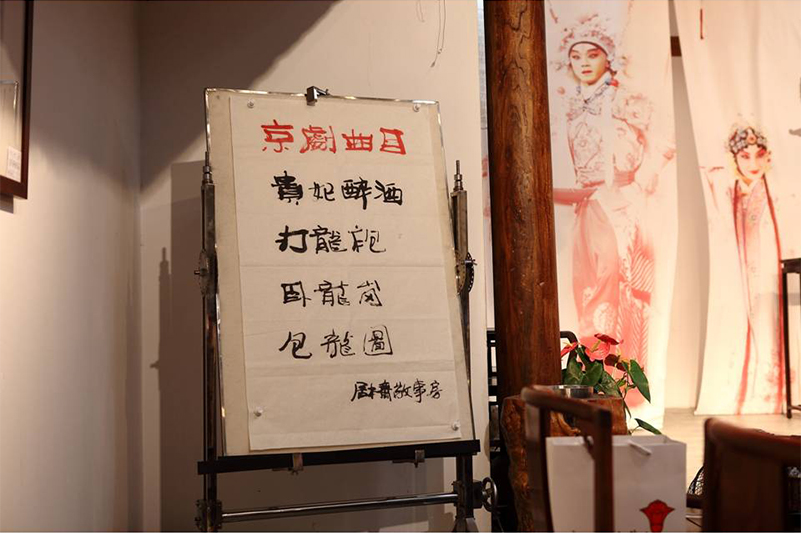 京劇曲目
貴妃醉酒
打龍袍
卧龍崗
包龍圖
故事房